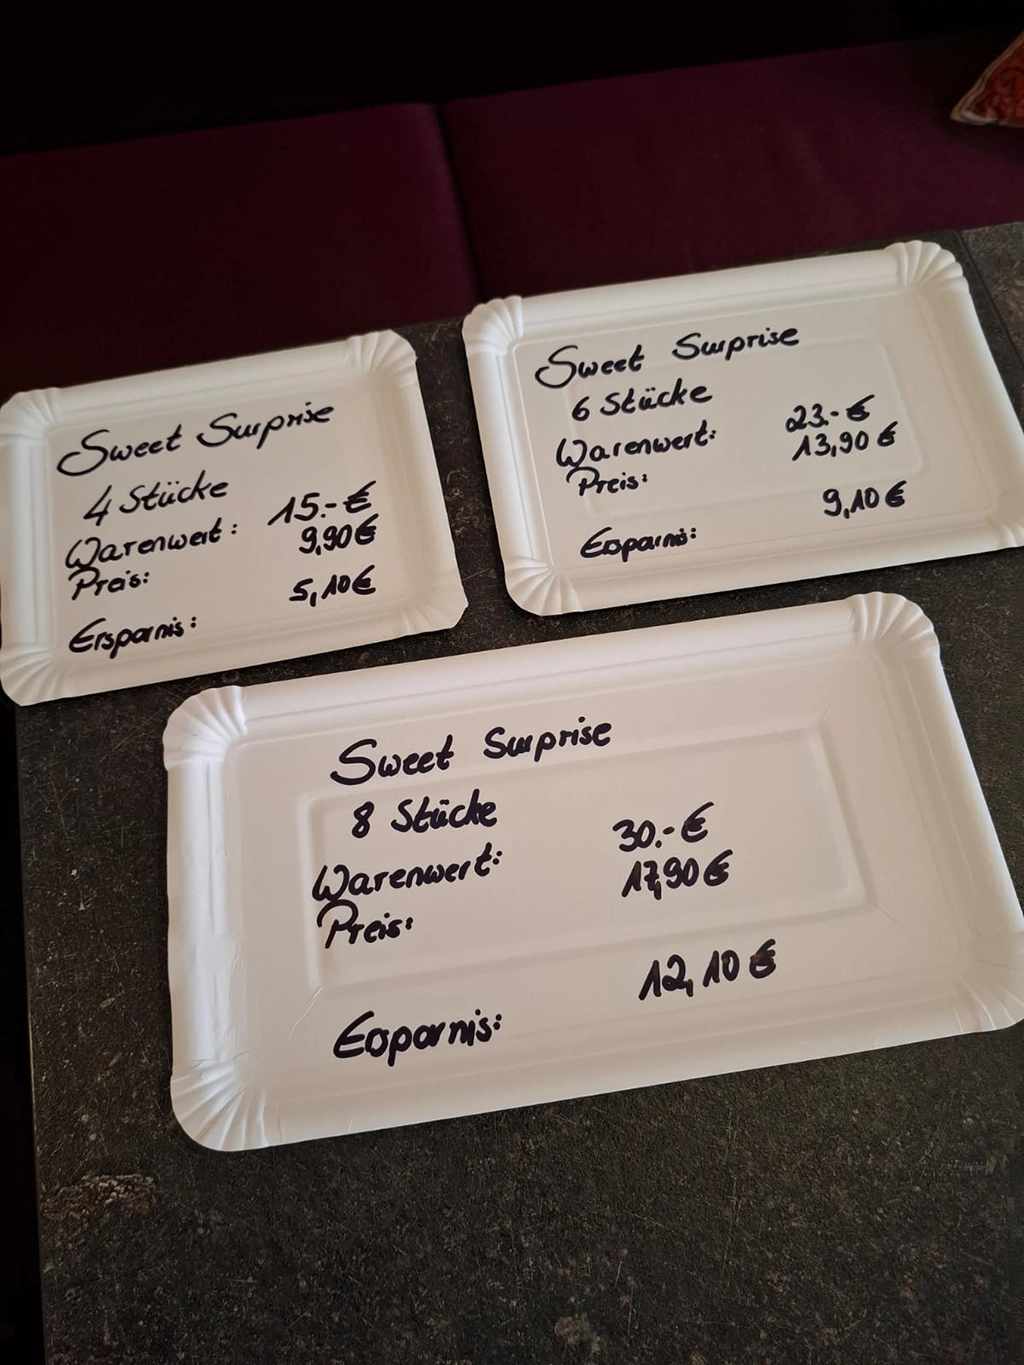 Sweet Surprise
4 Stücke
Warenwert: 15.-€
Preis: 9,90€
Ersparnis: 5,10€
Sweet Surprise
6 Stücke
Warenwert: 23.-€
Preis: 13,90€
Ersparnis: 9,10€
Sweet Surprise
8 Stücke
Warenwert: 30.-€
Preis: 17,90€
Ersparnis: 12,10€